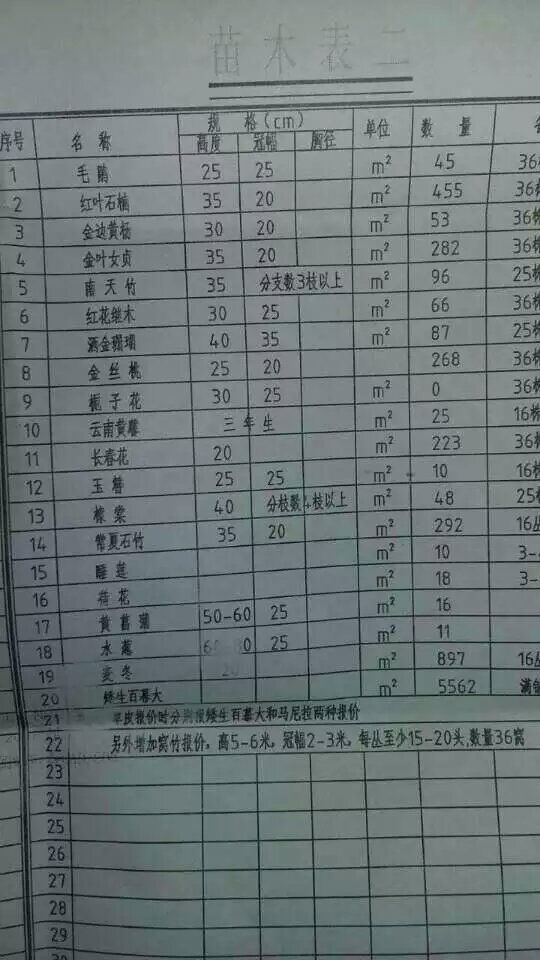 苗木表二
序号 名称 规格(cm) 单位 数量
高度 冠幅 胸径
1 毛鹃 25 25 m² 45 36株
2 红叶石楠 35 20 m² 455 36株
3 金边黄杨 30 20 m² 53 36株
4 金叶女贞 35 20 m² 282 36株
5 南天竹 35 分支数3枝以上 m² 96 25株
6 红花继木 30 25 m² 66 36株
7 洒金珊瑚 40 35 m² 87 25株
8 金丝桃 25 20 268 36株
9 栀子花 30 25 m² 0 36株
10 云南黄馨 三年生 m² 25 16株
11 长春花 20 m² 223 36株
12 玉簪 25 25 m² 10 16株
13 棣棠 40 分枝数4枝以上 m² 48 25株
14 常夏石竹 35 20 m² 292 16丛
15 睡莲 m² 10 3-
16 荷花 m² 18 3-
17 黄菖蒲 50-60 25 m² 16
18 水 25 m² 11
19 麦冬 20 m² 897 16丛
20 矮生百慕大 m² 5562 满铺
21 草皮报价时分别报矮生百慕大和马尼拉两种报价
22 另外增加窝竹报价，高5-6米，冠幅2-3米，每丛至少15-20头,数量36窝
23
24
25
26
27
28
29